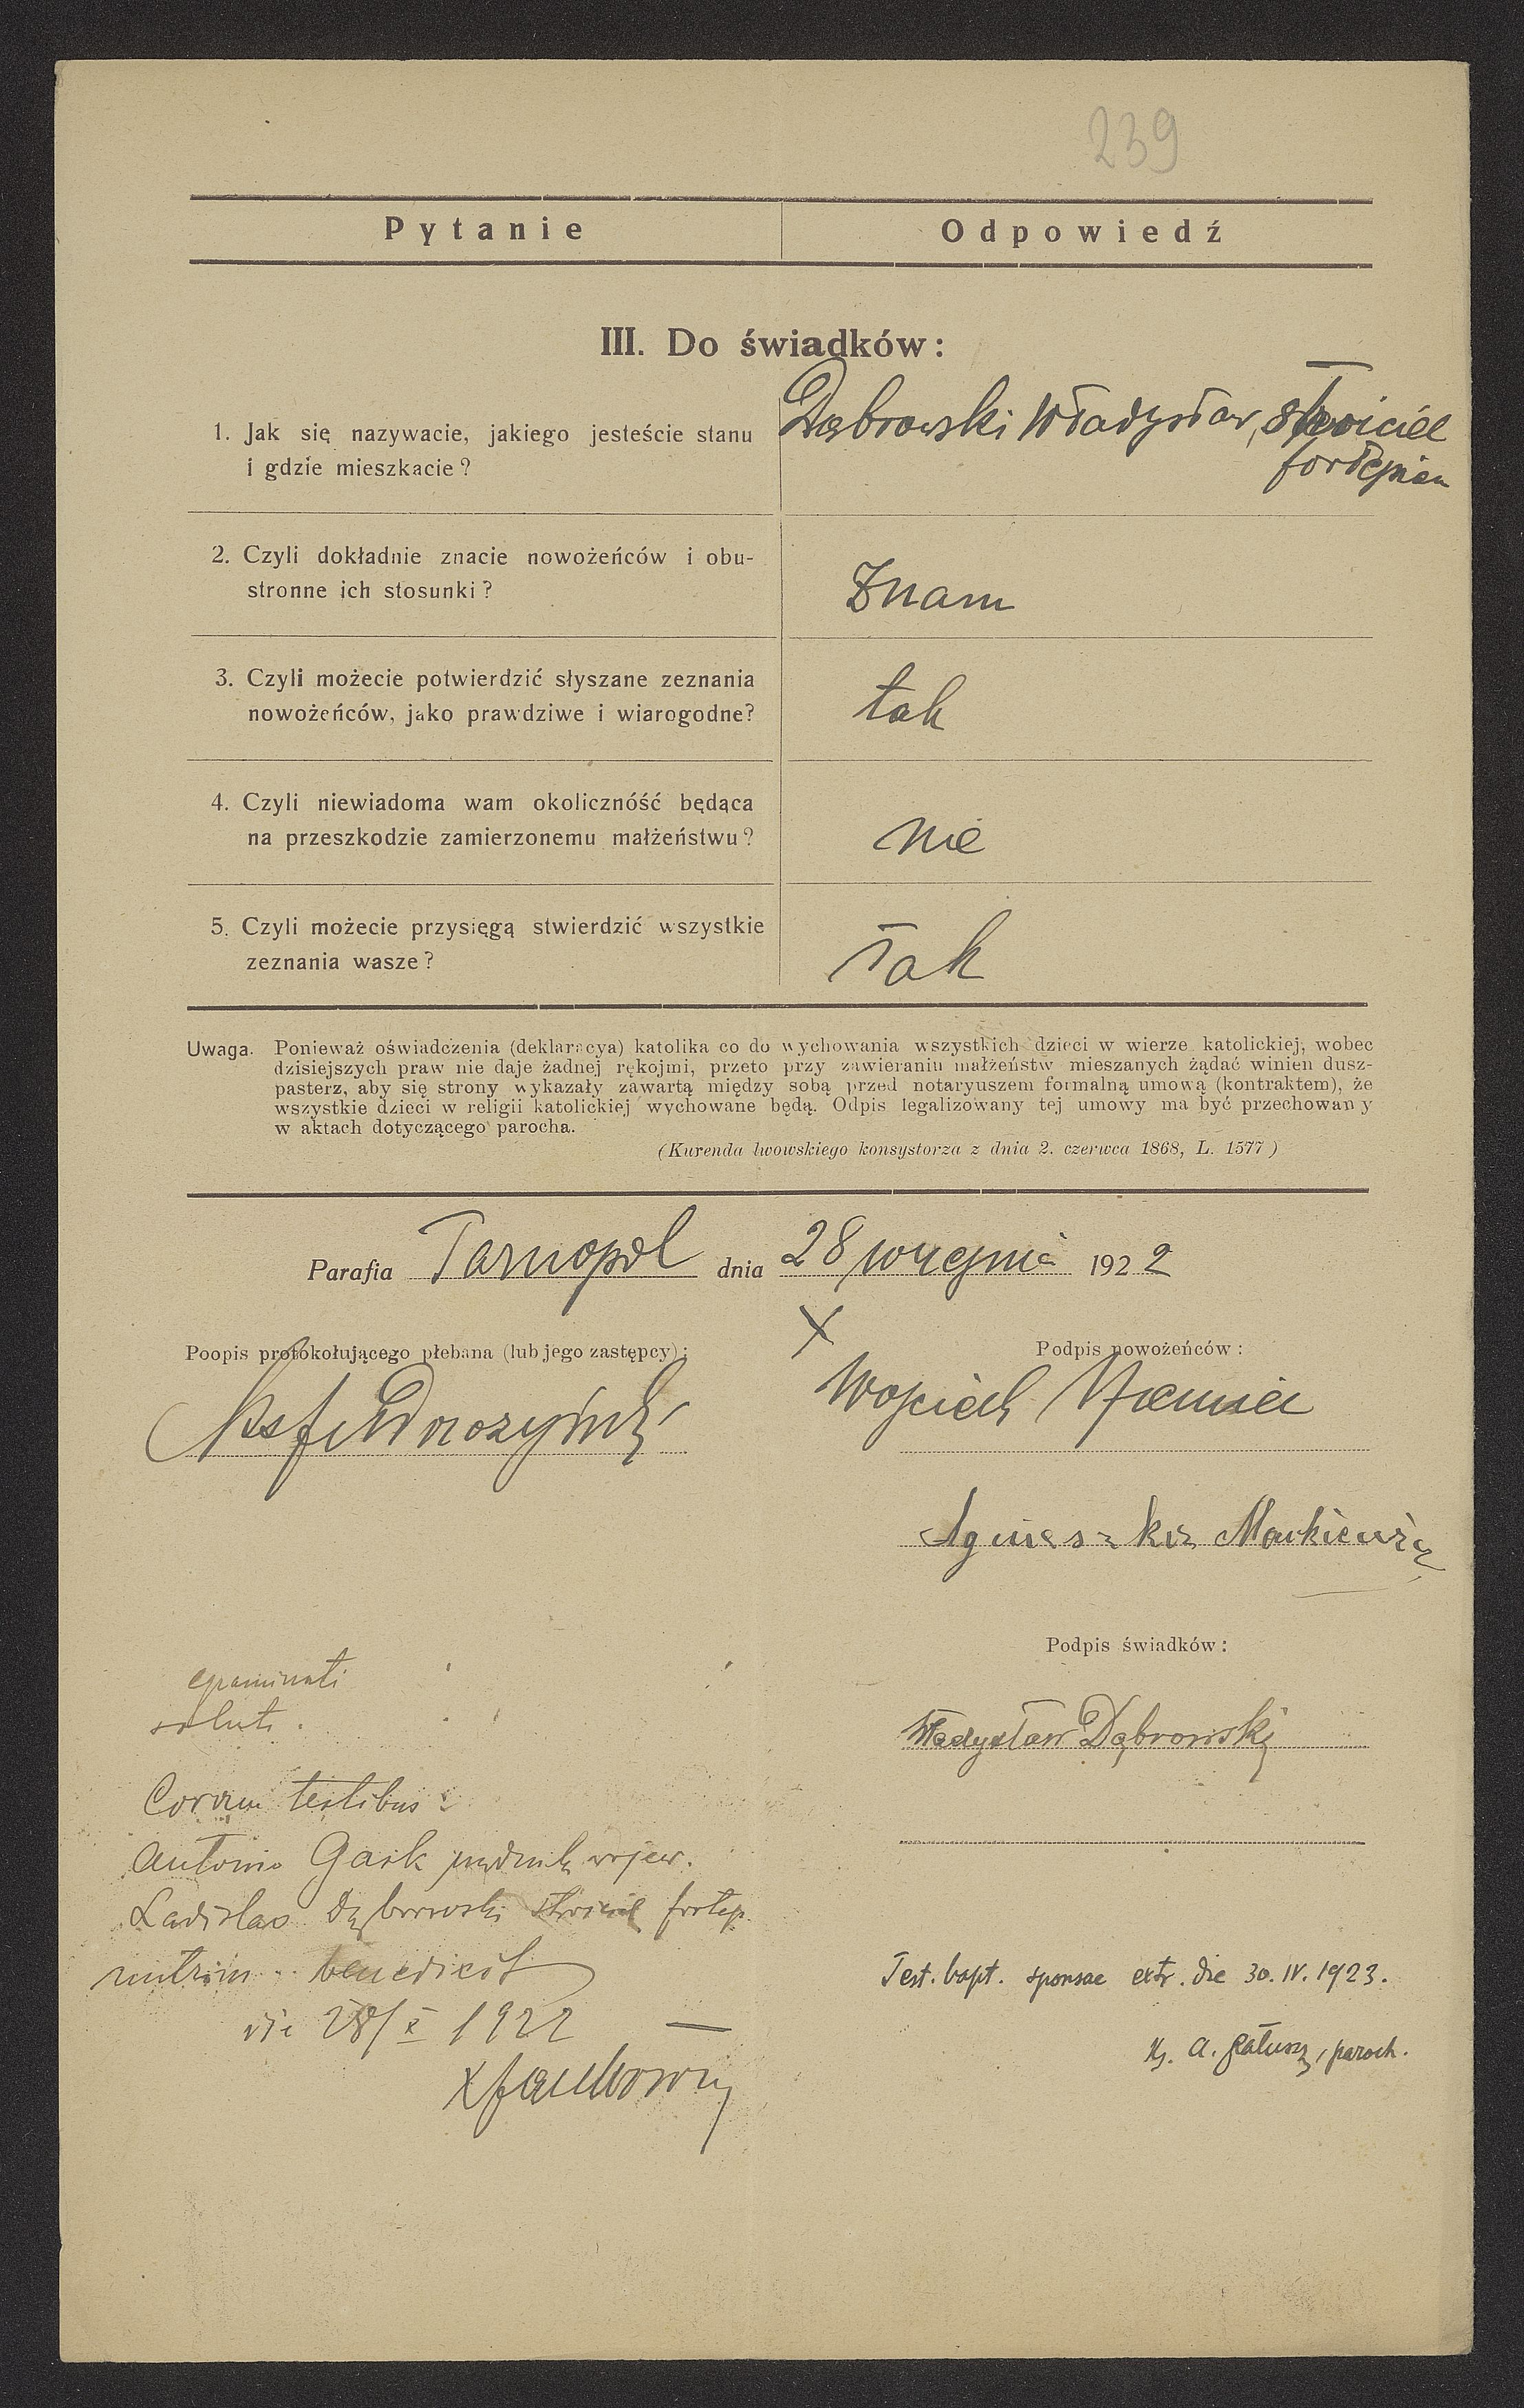 239
Pytanie
Odpowiedź
III. Do świadków:
1. Jak się nazywacie, jakiego jesteście stanu
i gdzie mieszkacie?
Dąbrowski Władysław, stroiciel
fortepian
2. Czyli dokładnie znacie nowożeńców i obu-
stronne ich stosunki?
Znam
3. Czyli możecie potwierdzić słyszane zeznania
nowożeńców, jako prawdziwe i wiarogodne?
tak
4. Czyli niewiadoma wam okolicznóść będąca
na przeszkodzie zamierzonemu małżeństwu?
nie
5. Czyli możecie przysięgą stwierdzić wszystkie
zeznania wasze?
tak
Uwaga. Ponieważ oświadczenia (deklaracya) katolika co do wychowania wszystkich dzieci w wierze katolickiej, wobec
dzisiejszych praw nie daje żadnej rękojmi, przeto przy zawieraniu małżeństw mieszanych żądać winien dusz-
pasterz, aby się strony wykazały zawartą między sobą przed notaryuszem formalną umową (kontraktem), że
wszystkie dzieci w religii katolickiej wychowane będą. Odpis legalizowany tej umowy ma być przechowany
w aktach dotyczącego parocha.
(Kurenda lwowskiego konsystorza z dnia 2. czerwca 1868, L. 1577)
Parafia Tarnopol dnia 28 września 1922
Poopis protokołującego plebana (lub jego zastępcy):
X
Podpis nowożeńców:
Wojciech
Agnieszka Mackiewicz
Podpis świadków:
Władysław Dąbrowski
examinati
soluti.
Coram testibus:
Antonio Gask wojew.
Ladislao Dąbrowski stroiciel fortep.
benedixit
die 28/X 1922
Test. bapt. sponsae extr. die 30. IV. 1923.
Ks. A. paroch.